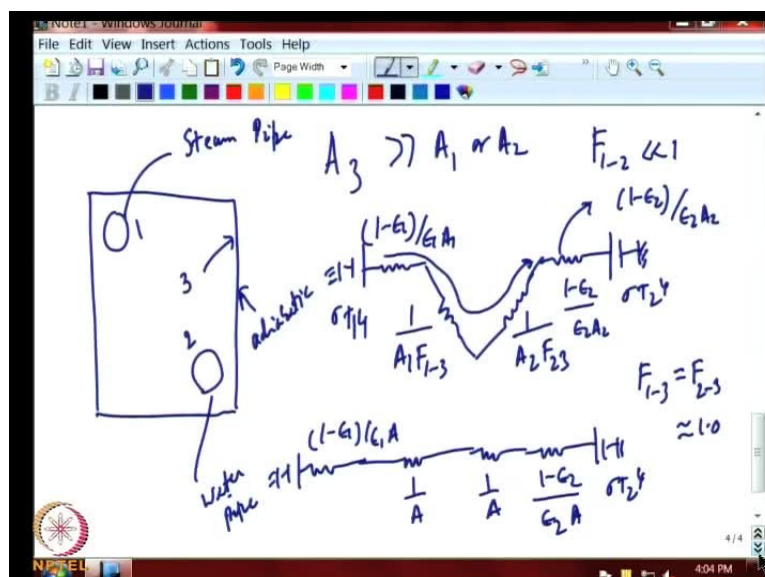 Note1 - Windows Journal
File Edit View Insert Actions Tools Help
Page Width
B I
Steam Pipe
A3 >> A1 or A2 F1-2 << 1
1
3
2
adiabatic
Water pipe
(1-ϵ2)/ϵ1A1
(1-ϵ2)/ϵ2A2
σT14
1/A1F1-3
1/A2F23
1-ϵ2/ϵ2A2
σT2^4
F1-3 = F2-3
≈ 1.0
(1-ϵ1)/ϵ1A
1/A
1/A
1-ϵ2/ϵ2A
σT2^4
4/4
NPTEL
4:04 PM